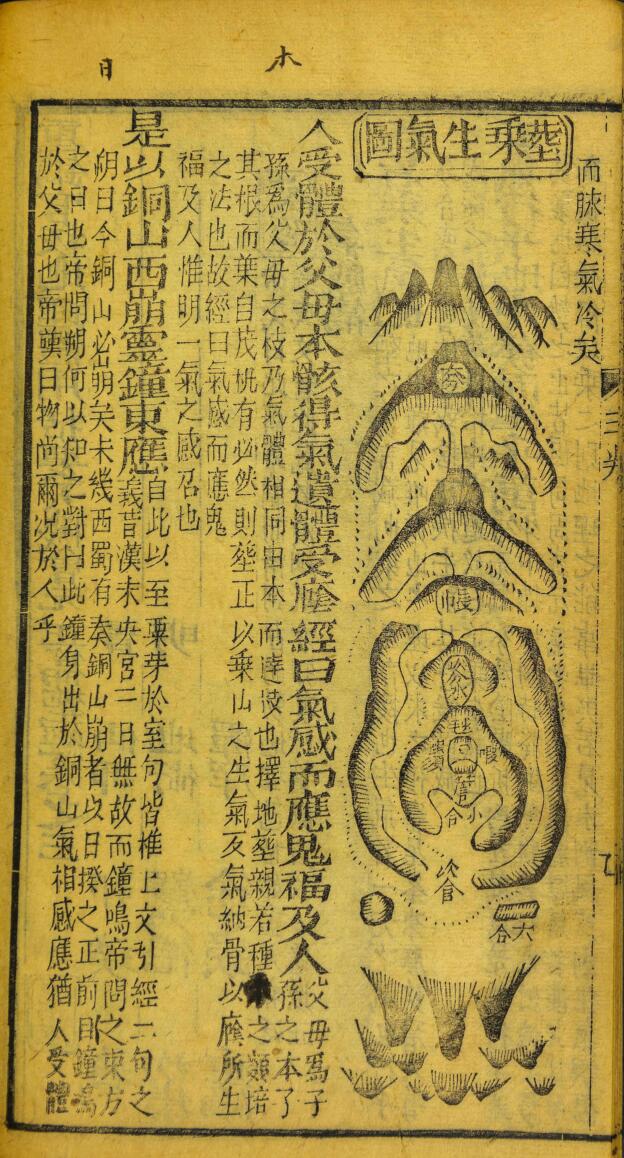 木
日
而脉寒氣冷矣
塟乘生氣圖
帳
分水
毬
小合
人受體於父母本骸得氣遺體受廕經曰氣感而應鬼福及人父母爲子
孫之本子
孫爲父母之枝乃氣體相同由本而達枝也擇地塟親若種之類培
其根而葉自茂有必然則塟正以乘山之生氣反氣納骨以廕所生
之法也故經曰氣感而應鬼
福及人惟明一氣之感召也
是以銅山西崩靈鐘東應自此以至粟芽於室句皆推上文引經二句之
義昔漢未央宮一日無故而鐘鳴帝問之東方
朔曰今銅山必崩矣未幾西蜀有奏銅山崩者以日揆之正前日鐘鳴
之日也帝問朔何以知之對曰此鐘身出於銅山氣相感應猶人受體
於父母也帝嘆曰物尚爾况於人乎